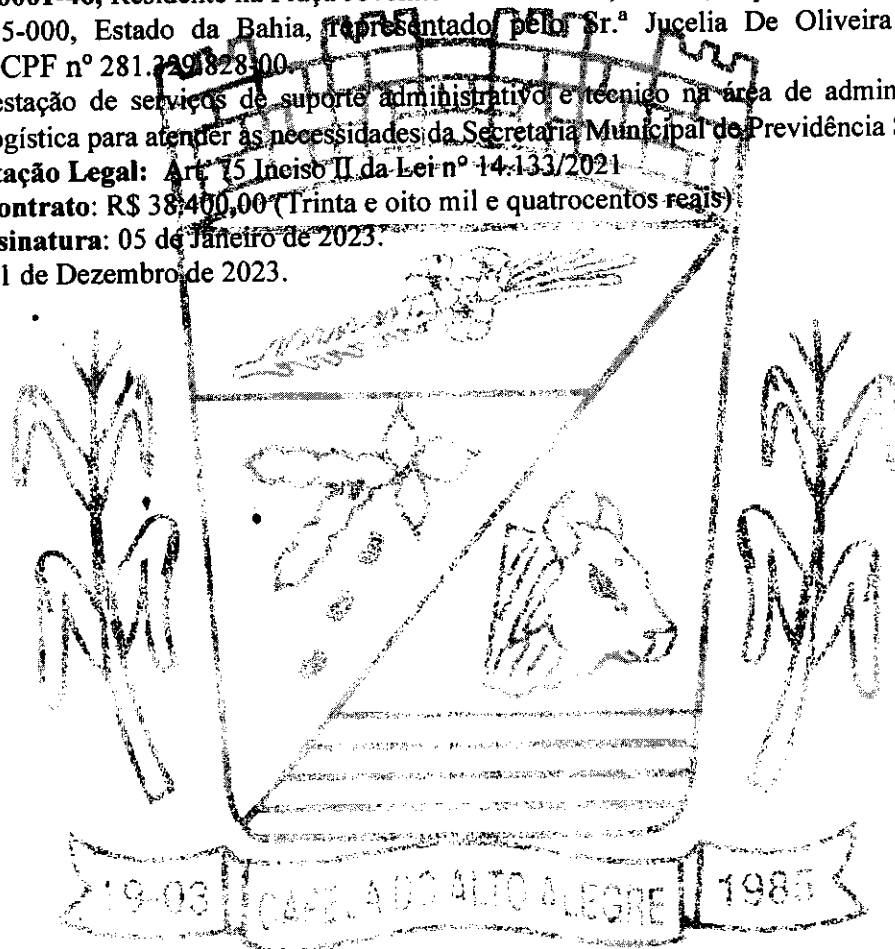 5-000, Estado da Bahia, representado pelo Sr.ª Jucelia De Oliveira
CPF nº 281.329.828-00.
estação de serviços de suporte administrativo e técnico na área de admin
ogística para atender às necessidades da Secretaria Municipal de Previdência S
tação Legal: Art. 75 Inciso II da Lei nº 14.133/2021
ontrato: R$ 38.400,00 (Trinta e oito mil e quatrocentos reais)
sinatura: 05 de Janeiro de 2023.
1 de Dezembro de 2023.
19-03 CAPELA DO ALTO ALEGRE 1985